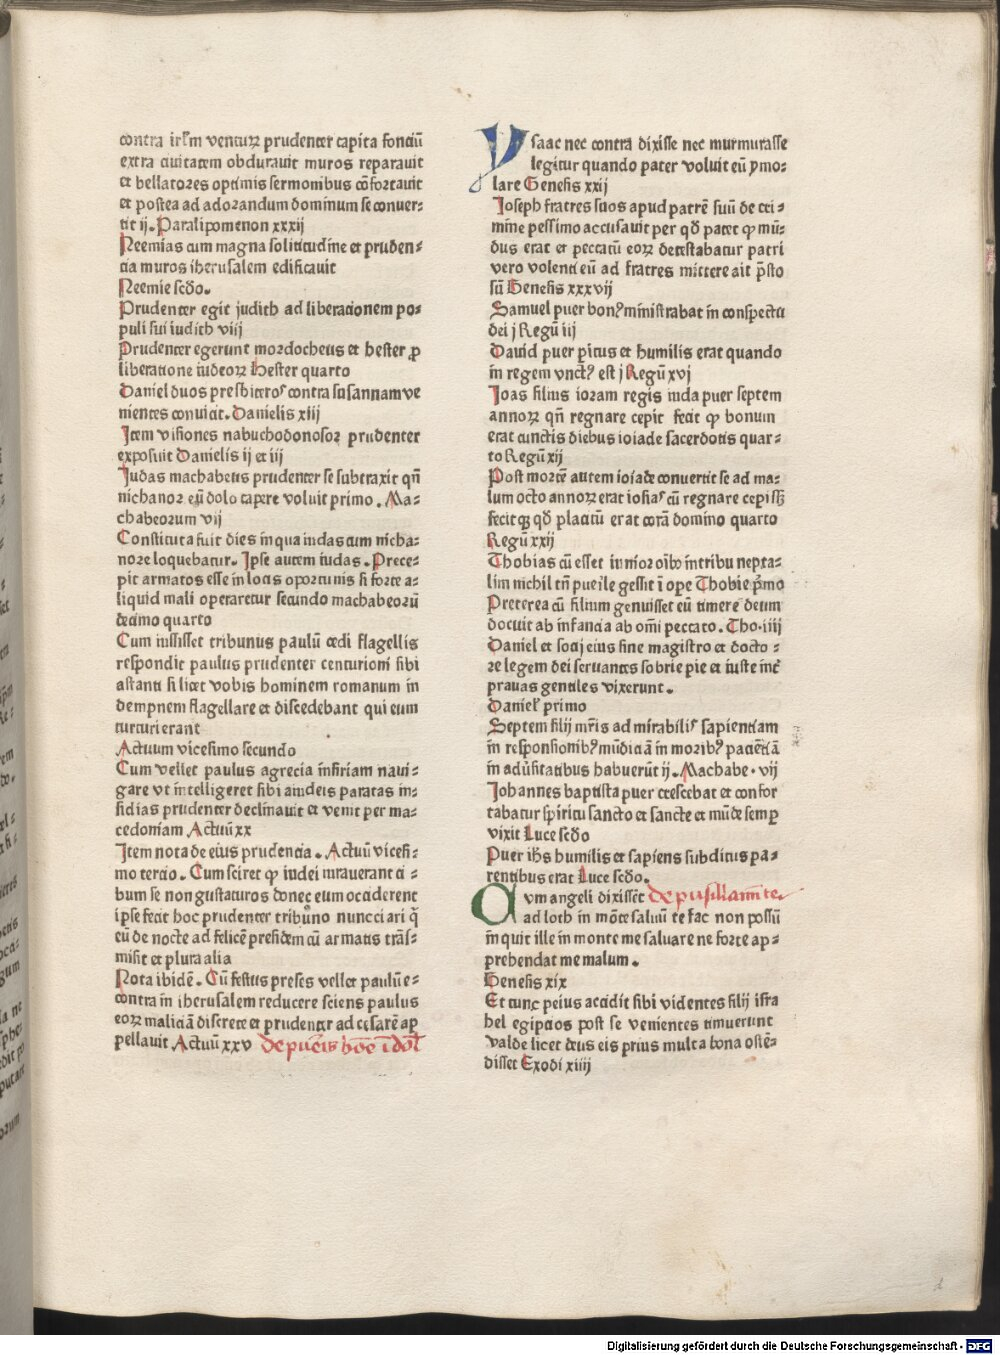 contra irlm̄ ventuꝝ prudenter capita fonciū
extra ciuitatem obdurauit muros reparauit
et bellatores optimis sermonibus cōfortauit
et postea ad adorandum dominum se conuer⸗
tit ij. Paralipomenon xxxij
Neemias cum magna solicitudine et pruden⸗
cia muros iherusalem edificauit
Neemie scdo.
Prudenter egit judith ad liberacionem po⸗
puli sui iudith viij
Prudenter egerunt mordocheus et hester ꝓ
liberatione iudeoꝝ Hester quarto
Daniel duos presbiteros contra susannam ve
nientes conuicit. Danielis xiij
Item visiones nabuchodonosoꝝ prudenter
exposuit Danielis ij et iij
Judas machabeus prudenter se subtraxit qn̄
nichanor eū dolo capere voluit primo. Ma⸗
chabeorum vij
Constituta fuit dies in qua iudas cum nicha⸗
nore loquebatur. Ipse autem iudas. Prece⸗
pit armatos esse in locis oportunis si forte a⸗
liquid mali operaretur secundo machabeorū
decimo quarto
Cum iussisset tribunus paulū cedi flagellis
respondit paulus prudenter centurioni sibi
astanti si licet vobis hominem romanum in
dempnem flagellare et discedebant qui eum
turcuri erant
Actuum vicesimo secundo
Cum vellet paulus a grecia in siriam naui⸗
gare vt intelligeret sibi a iudeis paratas in⸗
sidias prudenter declinauit et venit per ma⸗
cedoniam Actuū xx
Item nota de eius prudencia. Actuū vicesi⸗
mo tercio. Cum sciret ꝙ iudei iurauerant ci⸗
bum se non gustaturos donec eum occiderent
ipse fecit hoc prudenter tribuno nuncciari q̄
eū de nocte ad felicē presidem cū armatis trās⸗
misit et plura alia
Nota ibidē. Cū festus preses vellet paulū e⸗
contra in iherusalem reducere sciens paulus
eoꝝ maliciā discrete et prudenter ad cesarē ap
pellauit Actuū xxv de pueris bōe īdol'
Ysaac nec contra dixisse nec murmurasse
legitur quando pater voluit eū ymo⸗
lare Genesis xxij
Joseph fratres suos apud patrē suū de cri⸗
mine pessimo accusauit per qd̄ patet ꝙ mū⸗
dus erat et peccatū eoꝝ detestabatur patri
vero volenti eū ad fratres mittere ait p̄sto
sū Genesis xxxvij
Samuel puer bonꝰ ministrabat in conspectu
dei j Regū iij
Dauid puer p̄itus et humilis erat quando
in regem vnctꝰ est j Regū xvj
Joas filius ioram regis iuda puer septem
annoꝝ qn̄ regnare cepit fecit ꝙ bonum
erat cunctis diebus ioiade sacerdotis quar⸗
to Regū xij
Post mortē autem ioiade conuertit se ad ma⸗
lum octo annoꝝ erat iosias cū regnare cepisset
fecitqꝫ qd̄ placitū erat corā domino quarto
Regū xxij
Thobias cū esset iunior oībꝰ in tribu nepta⸗
lim nichil tn̄ puerile gessit ī ope Thobie p̄mo
Preterea cū filium genuisset eū timere deum
docuit ab infancia ab om̄i peccato. Tho. iiij
Daniel et socij eius sine magistro et docto⸗
re legem dei seruantes sobrie pie et iuste int̄
prauas gentiles vixerunt.
Danieł primo
Septem filij mr̄is admirabilis sapientiam
in responsionibꝰ mūdiciā in moribꝰ pacientiā
in aduersitatibus habuerūt ij. Machabe. vij
Johannes baptista puer crescebat et confor
tabatur spiritu sancto et sancte et mūde semꝑ
vixit Luce scdo
Puer ihs̄ humilis et sapiens subditus pa⸗
rentibus erat Luce scdo. de pusillanm̄te
Cvm angeli dixissēt
ad loth in mōte saluū te fac non possū
inquit ille in monte me saluare ne forte ap⸗
prehendat me malum.
Genesis xix
Et tunc peius accidit sibi videntes filij isra
hel egipcios post se venientes timuerunt
valde licet deus eis prius multa bona ostē⸗
disset Exodi xiiij
Digitalisierung gefördert durch die Deutsche Forschungsgemeinschaft - DFG